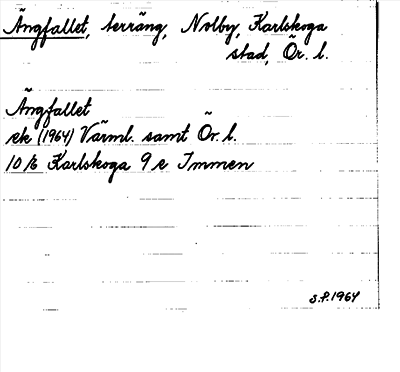 Ängfallet, terräng, Nolby, Karlskoga
stad, Ör. l.
Ängfallet
ek (1964) Värml. samt Ör. l.
10/6 Karlskoga 9 e Immen
S.P. 1964